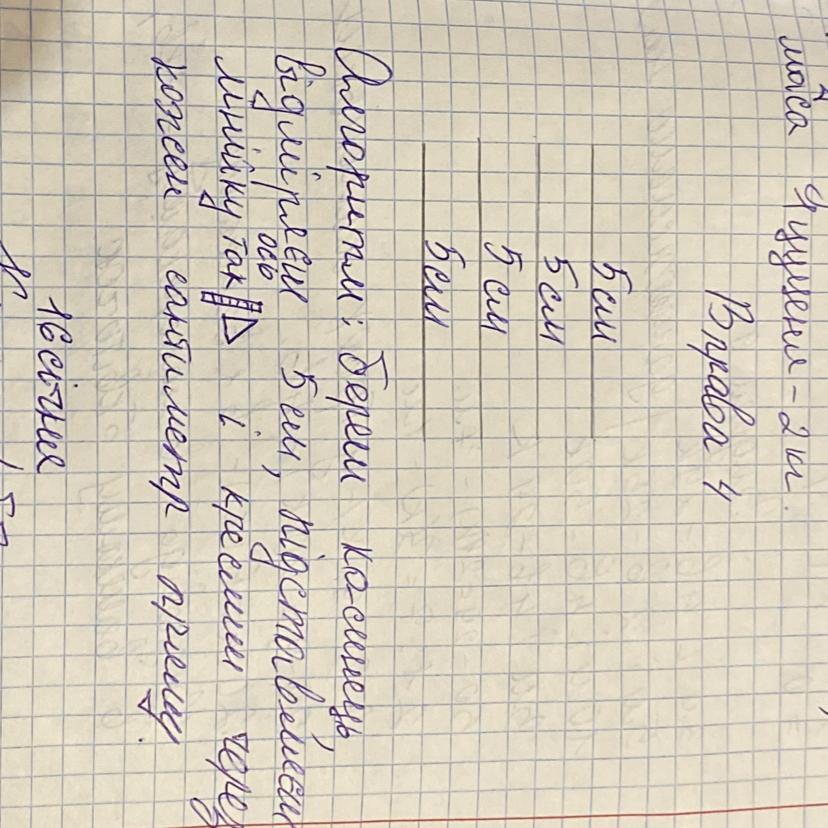 маса цуценя - 2 кг.
Вправа 4
5 см
5 см
5 см
5 см
Алгоритм: берем косинець
відміряєм 5 см, підставляєм
лінійку ось так і креслим через
кожен сантиметр пряму.
16 січня